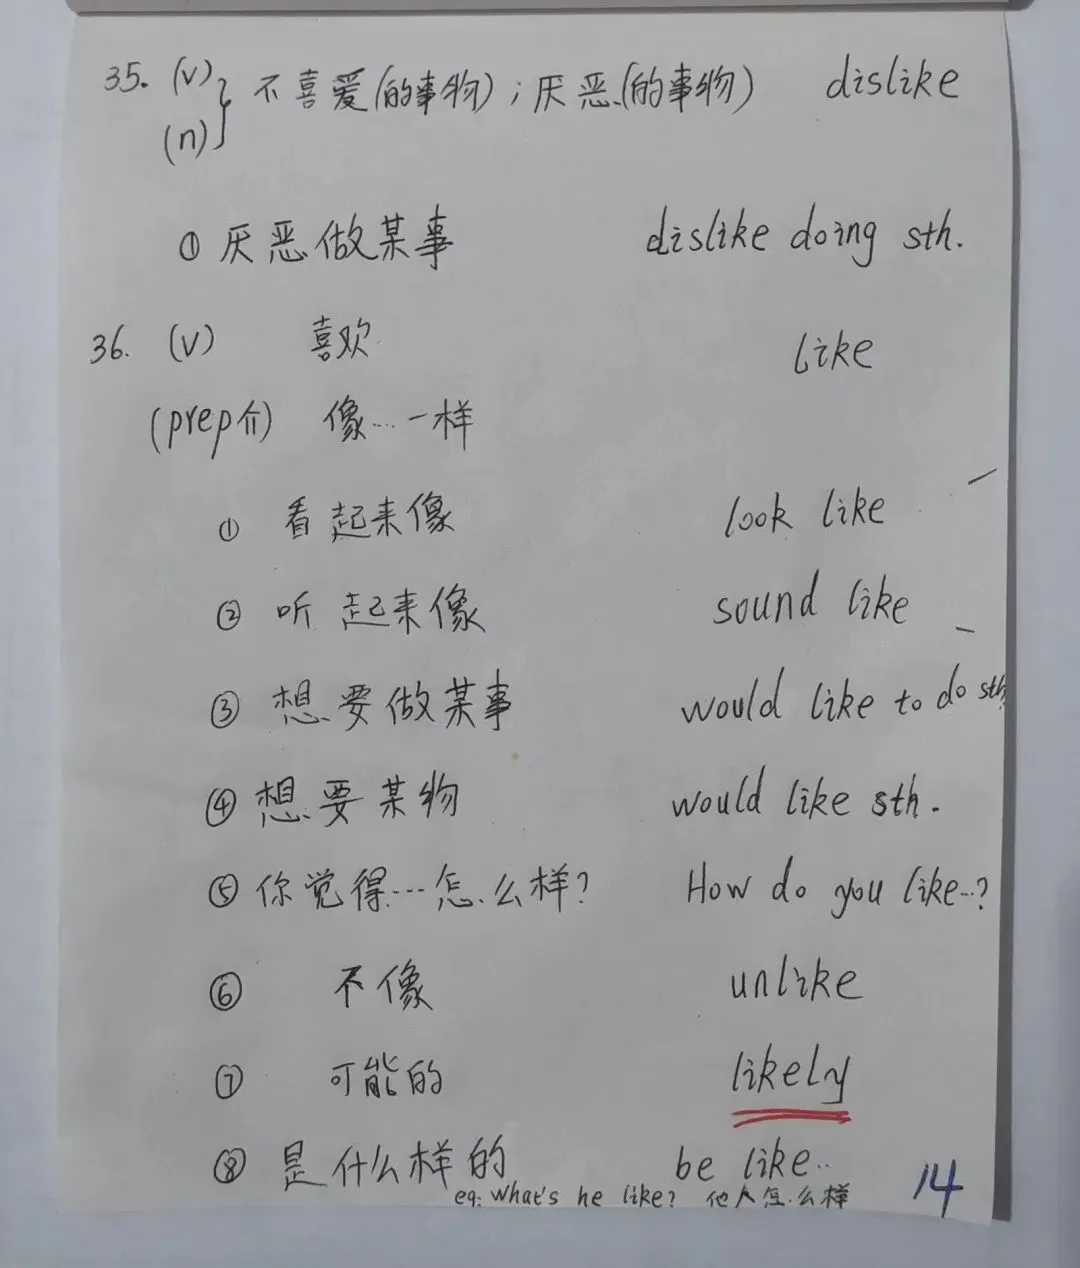 35. (v)} 不喜爱(的事物);厌恶(的事物) dislike
(n)
① 厌恶做某事 dislike doing sth.
36. (v) 喜欢 like
(prep介) 像…一样
① 看起来像 look like
② 听起来像 sound like
③ 想要做某事 would like to do sth
④ 想要某物 would like sth.
⑤ 你觉得…怎么样? How do you like…?
⑥ 不像 unlike
⑦ 可能的 likely
⑧ 是什么样的 be like..
eg: What's he like? 他人怎么样
14